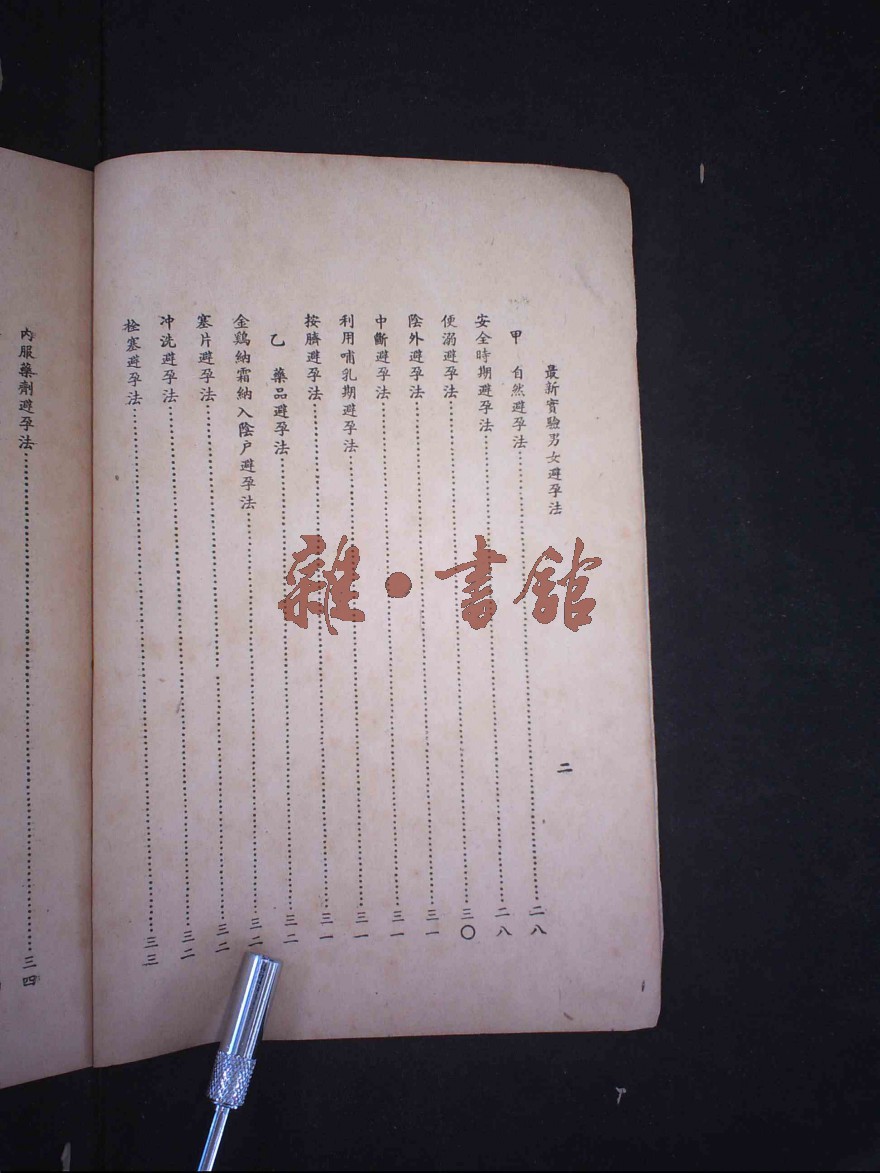 最新實驗男女避孕法
二
甲 自然避孕法……二八
安全時期避孕法……二八
便溺避孕法……三〇
陰外避孕法……三一
中斷避孕法……三一
利用哺乳期避孕法……三一
按臍避孕法……三一
乙 藥品避孕法……三二
金鷄納霜納入陰户避孕法……三二
塞片避孕法……三二
冲洗避孕法……三二
栓塞避孕法……三三
内服藥劑避孕法……三四
雜·書館